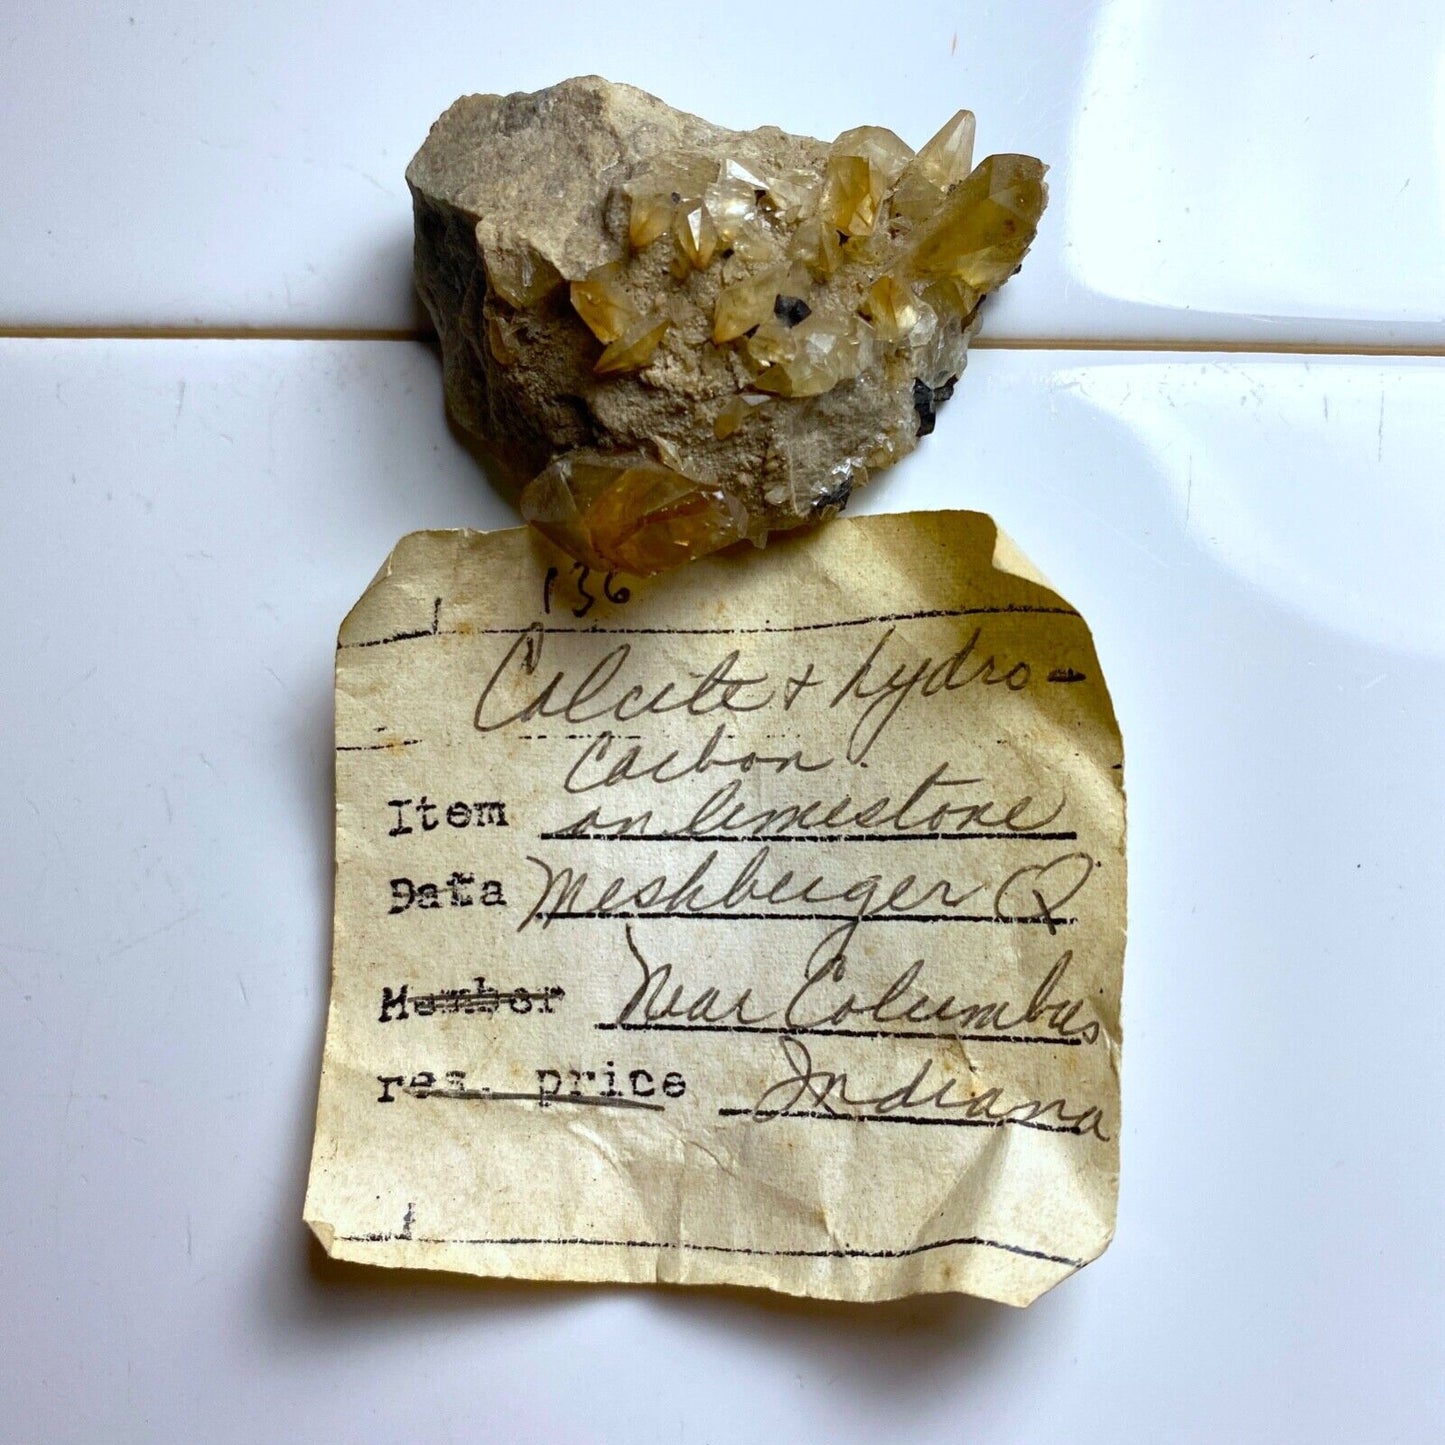 136
Calcite + hydro-
carbon
Item on limestone
Data Meshberger Q
Member Near Columbus
res. price Indiana